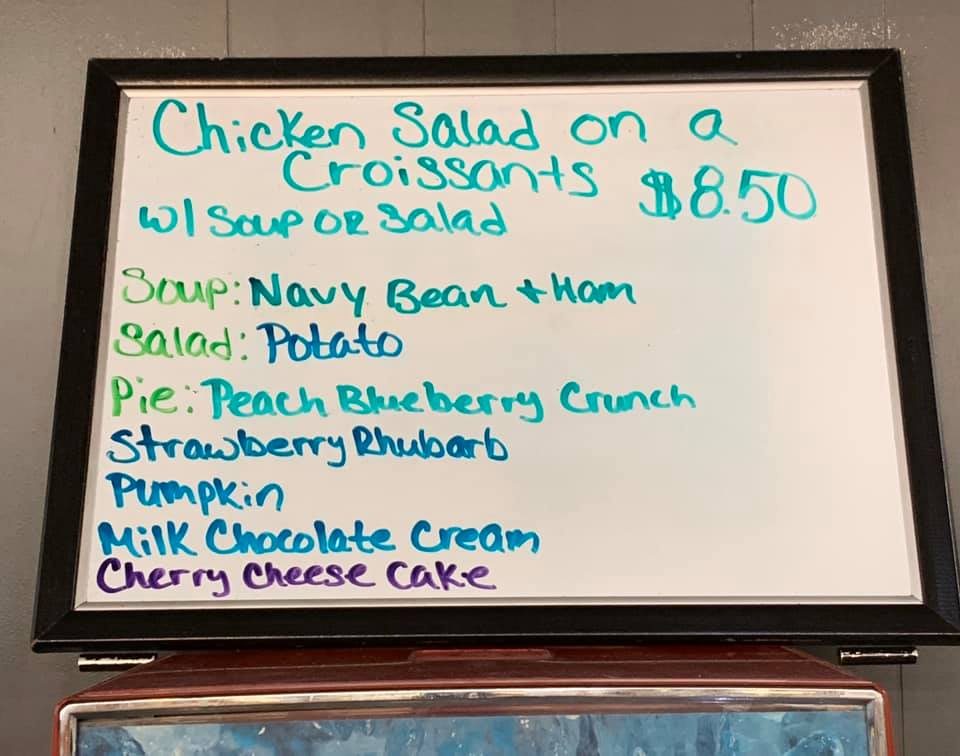 Chicken Salad on a
Croissants $8.50
w/ Soup OR Salad
Soup: Navy Bean + Ham
Salad: Potato
Pie: Peach Blueberry Crunch
Strawberry Rhubarb
Pumpkin
Milk Chocolate Cream
Cherry Cheese Cake